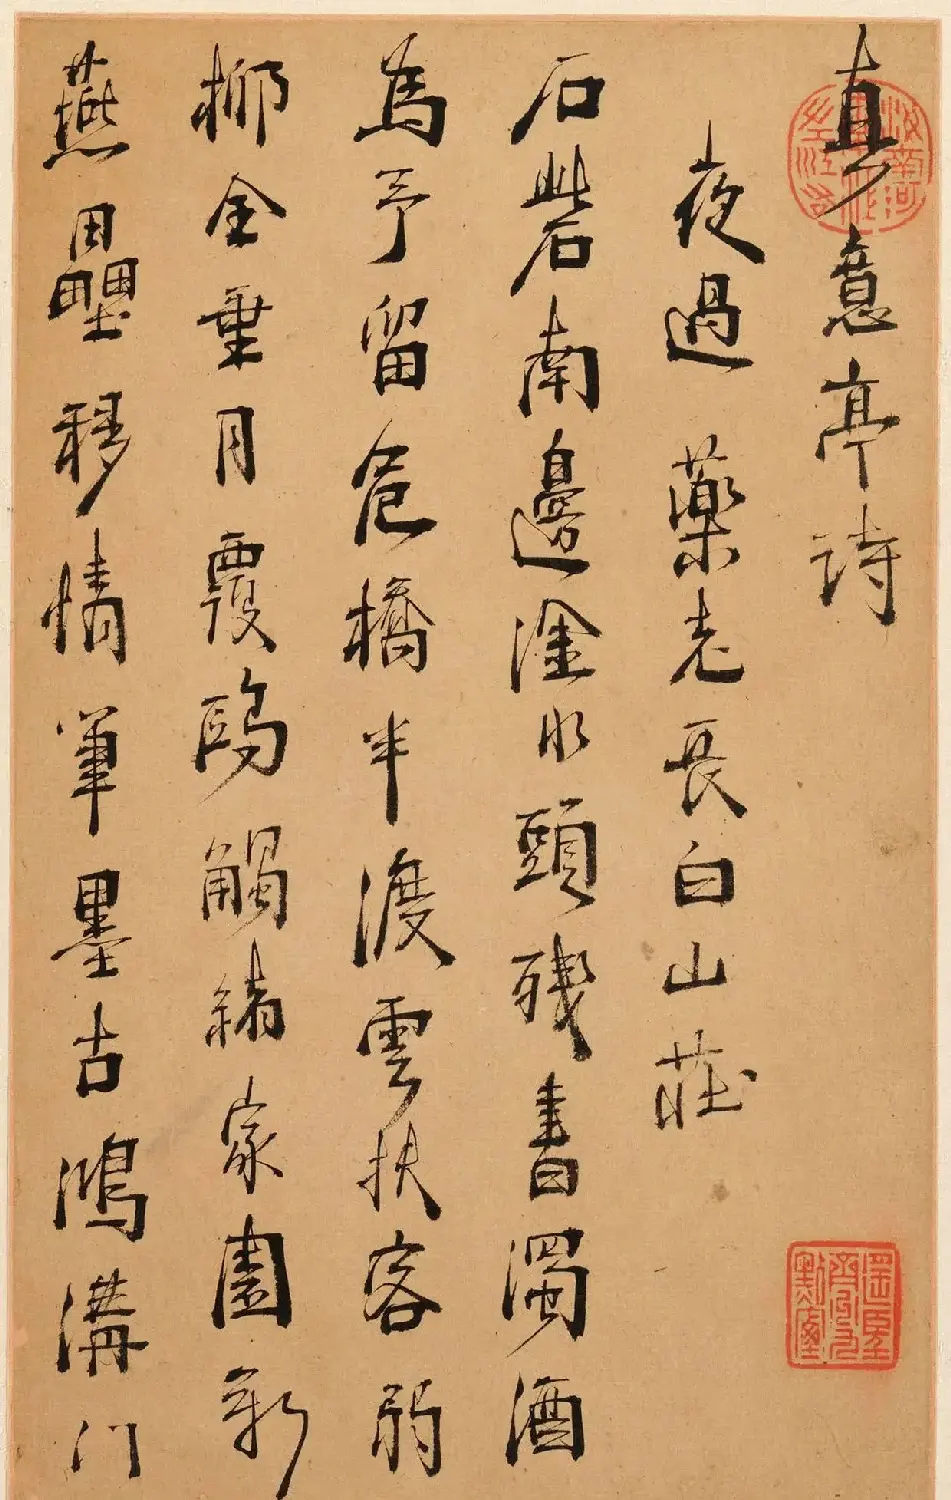 真意亭詩
夜過藥老長白山莊
石砦南邊淦水頭殘書濁酒
為予留危橋半渡雲扶客弱
柳全垂月覆鷗觸緒家園新
燕壘移情筆墨古鴻溝門